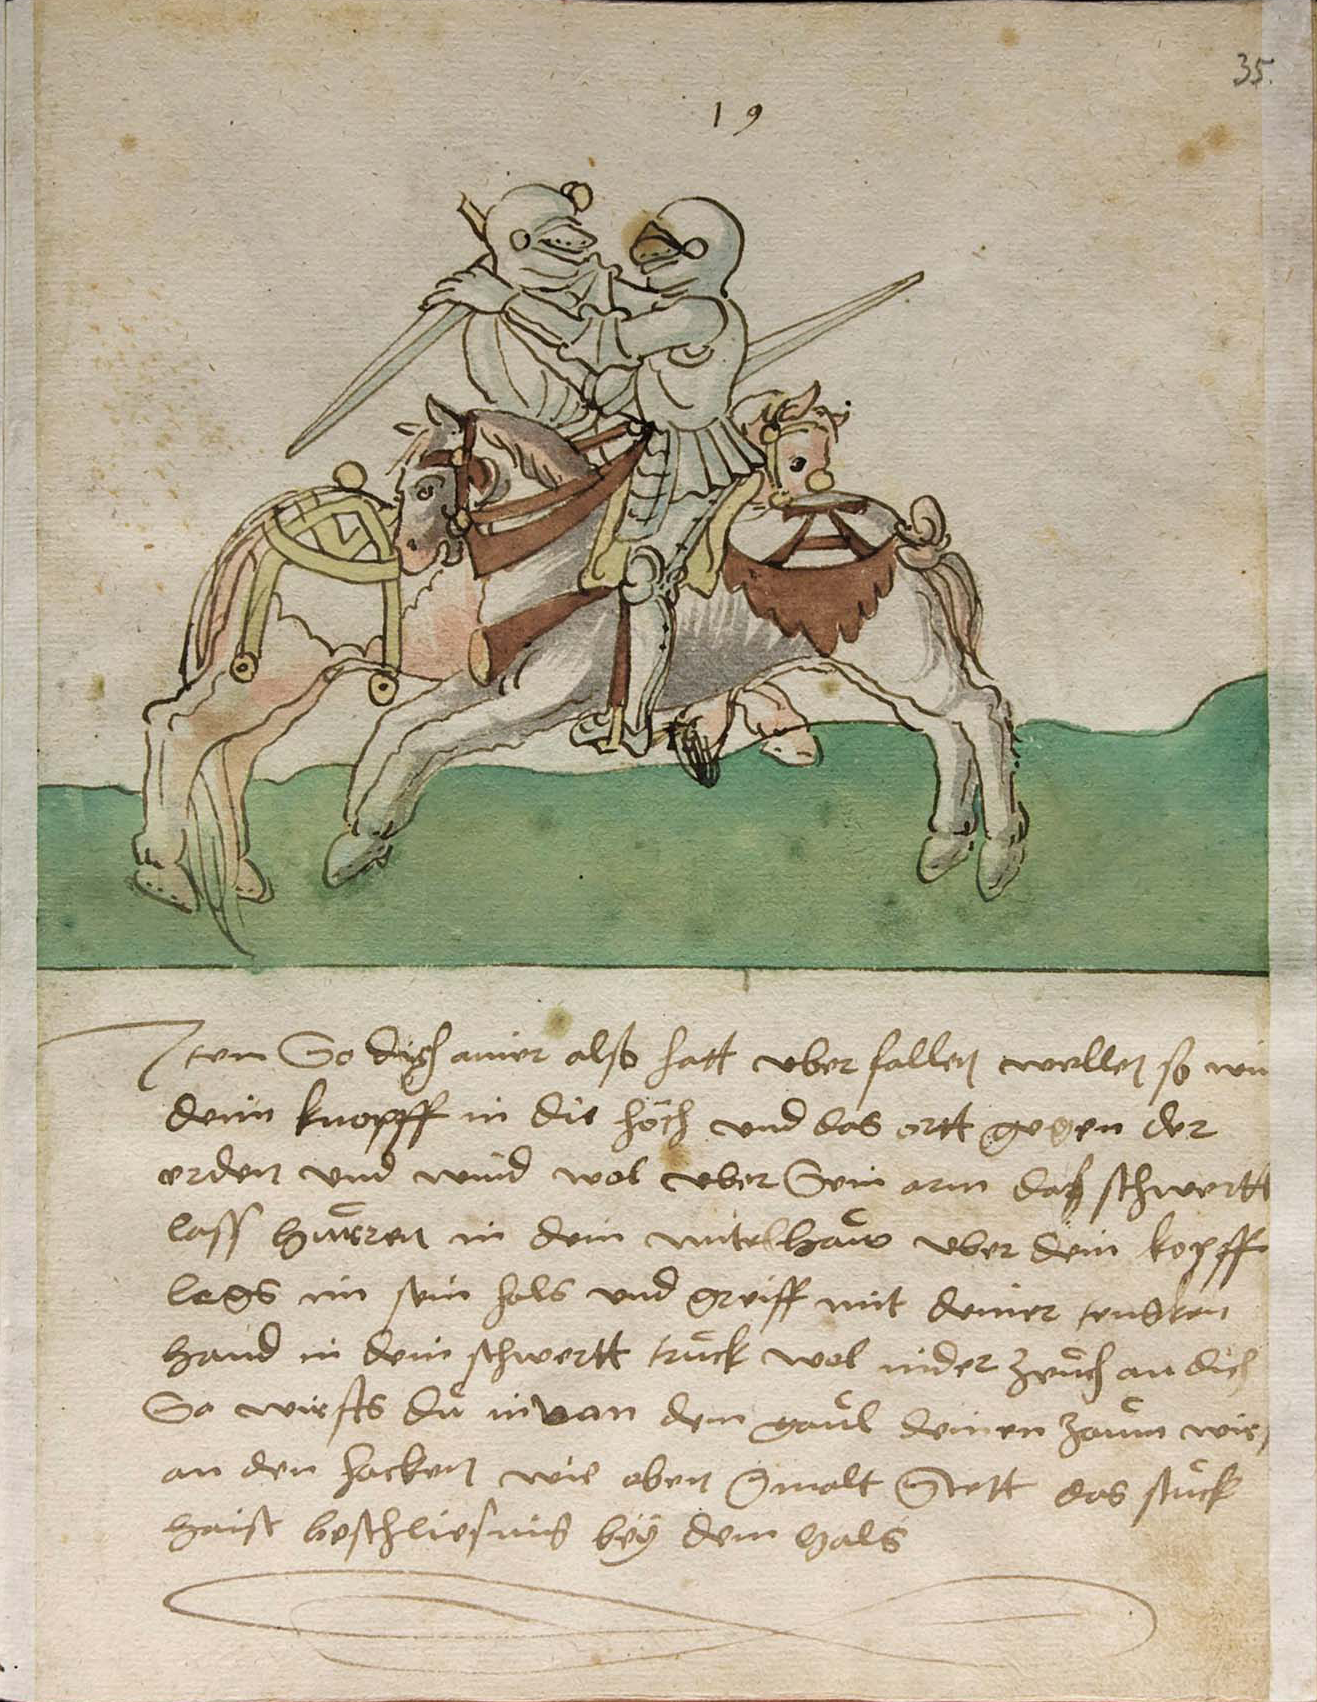 35.
19
Item So dich ainer also hatt vber fallen wellen so win
dein knopff in die höch vnd das ortt gegen der
erden vnd wind wol vber Sein arm das schwertt
lass hurren in dem mitelhaw vber dein kopff
legs im sein hals vnd greiff mit deiner tencken
hand in dein schwertt truck wol nider zeuch an dich
So wirfsts du in van dem gaul deinen zaum wirf
an den hacken wie oben gmalt Stett das stuck
haist beschliesung bey dem hals